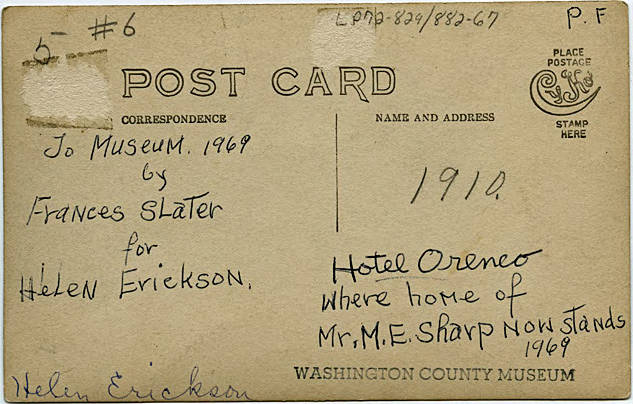 5- #6
LP72-829/882-67
P. F
POST CARD
PLACE
POSTAGE
CyKo
STAMP
HERE
CORRESPONDENCE
NAME AND ADDRESS
To Museum. 1969
by
Frances Slater
for
Helen Erickson.
1910.
Hotel Orenco
where home of
Mr. M.E. Sharp now stands
1969
WASHINGTON COUNTY MUSEUM
Helen Erickson